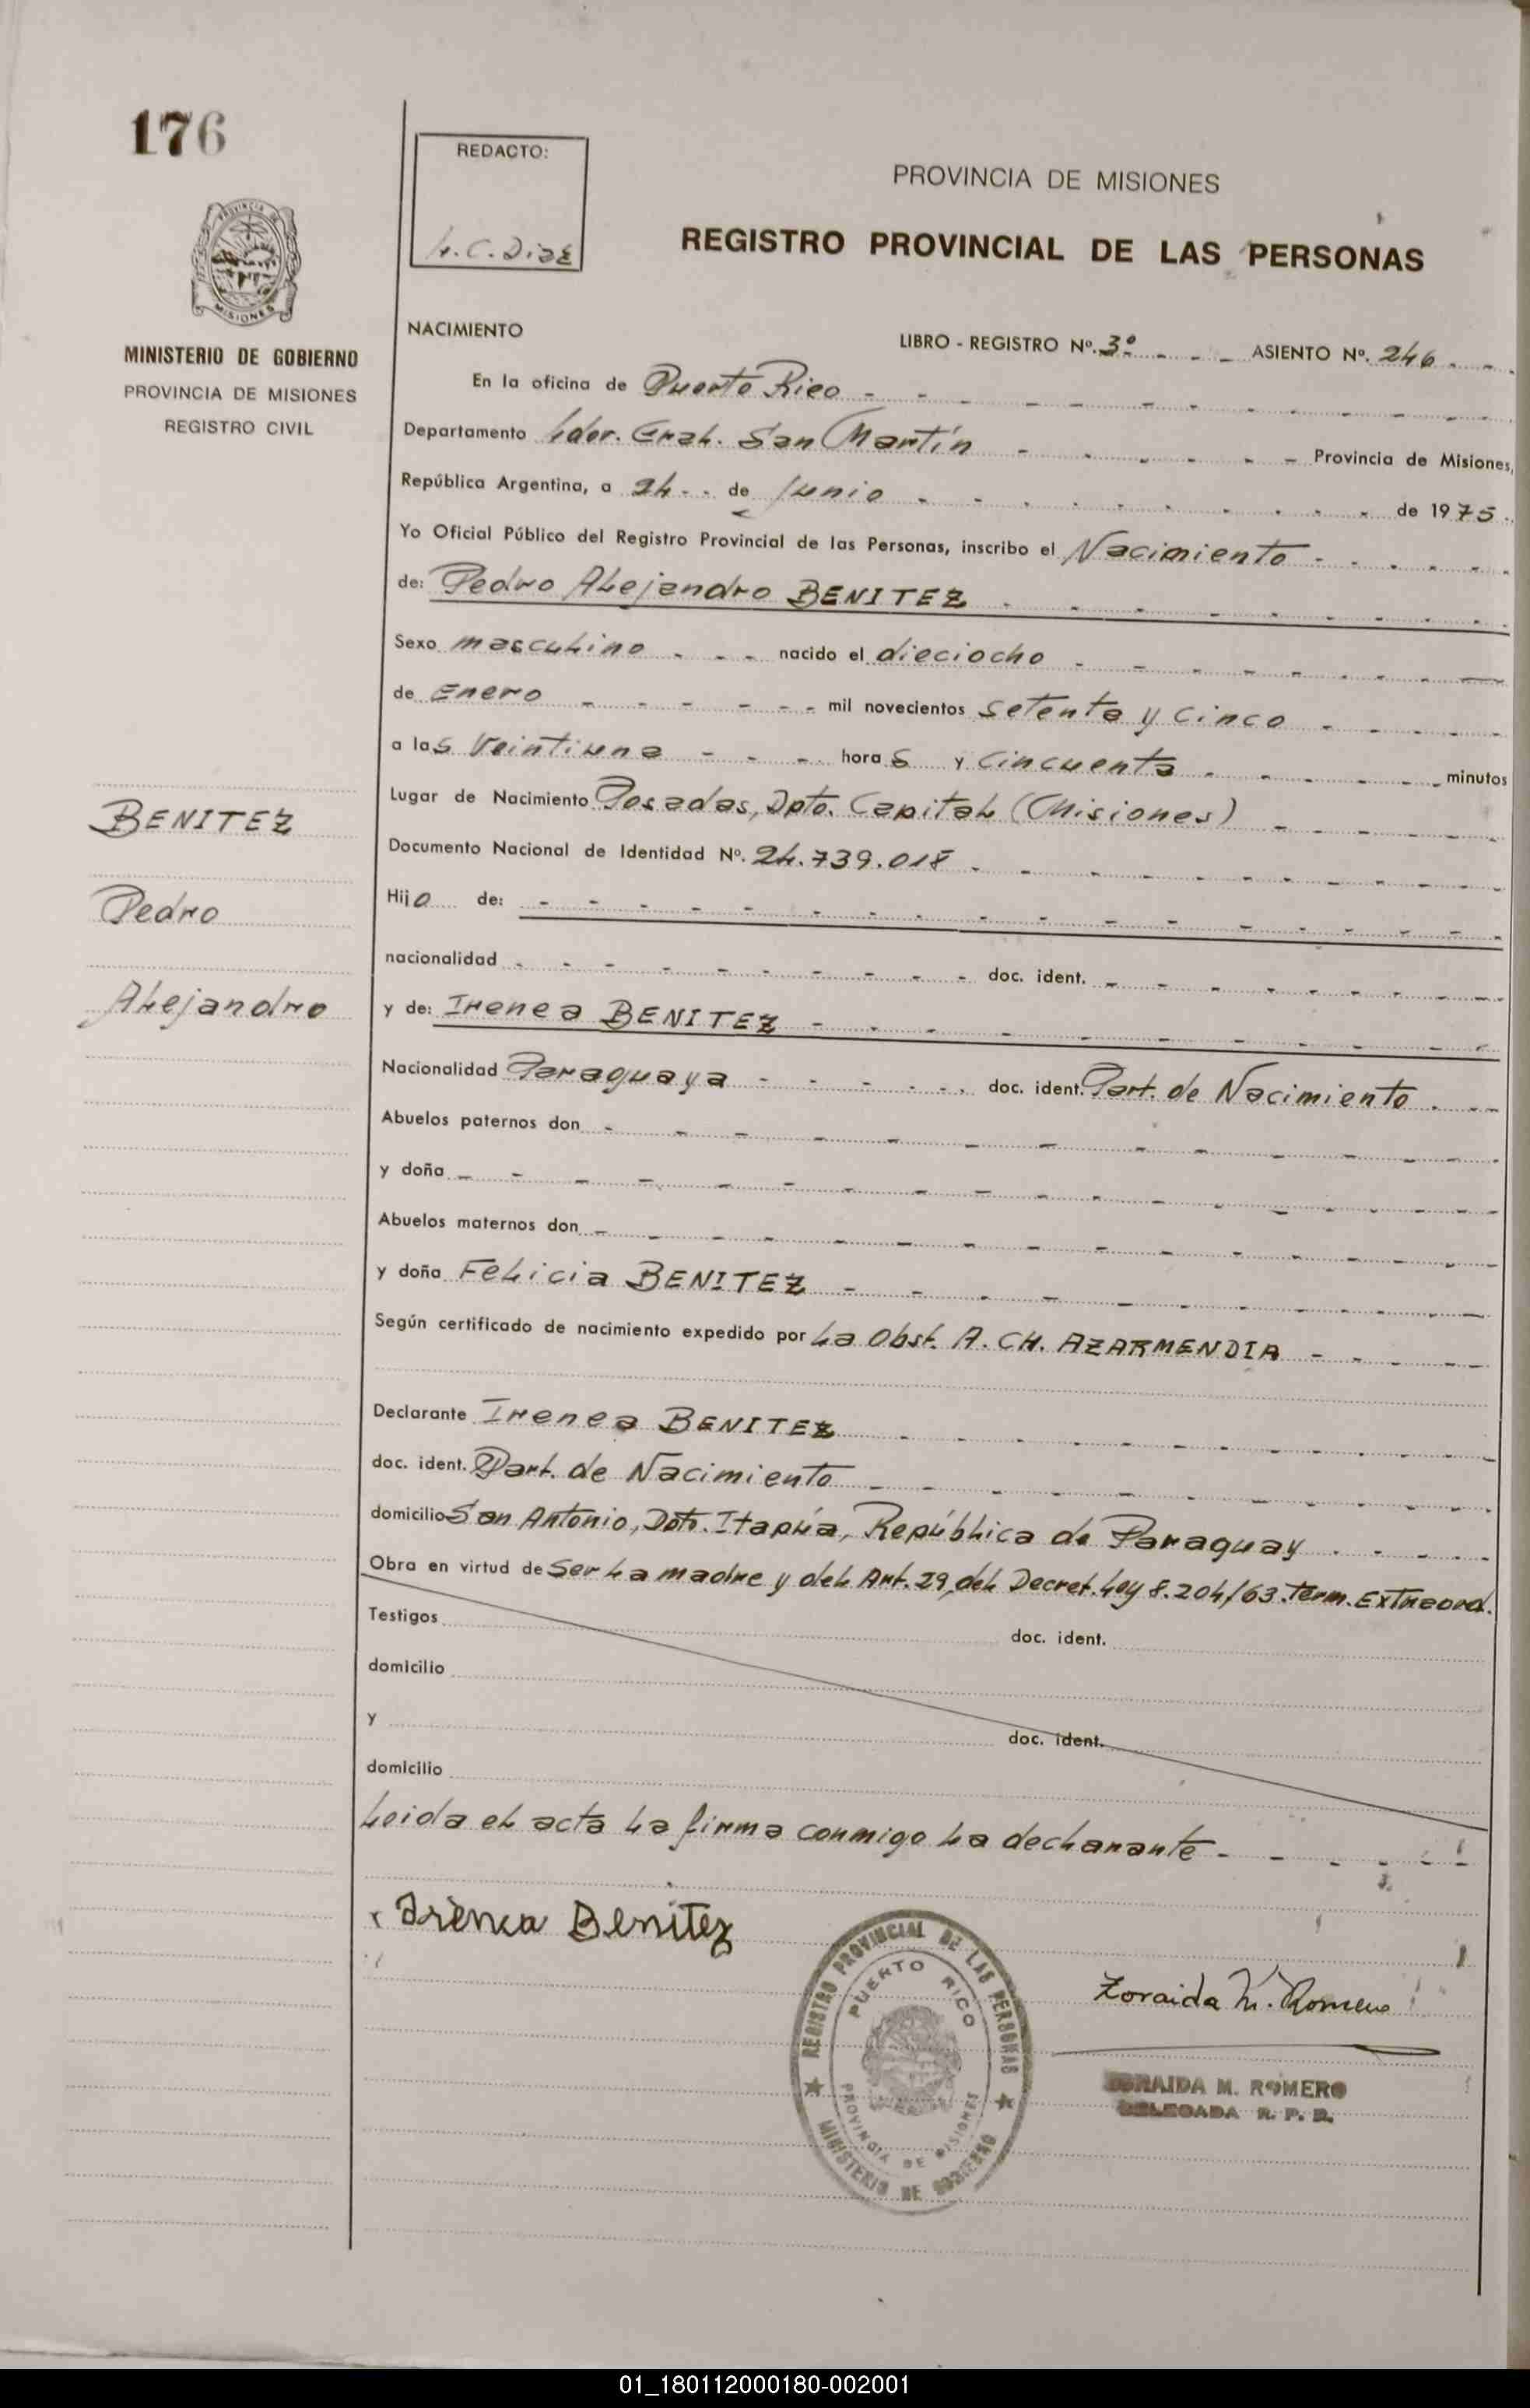 176
REDACTO:
L.C. Diaz
PROVINCIA DE MISIONES
REGISTRO PROVINCIAL DE LAS PERSONAS
PROVINCIA DE
MISIONES
MINISTERIO DE GOBIERNO
PROVINCIA DE MISIONES
REGISTRO CIVIL
NACIMIENTO
LIBRO - REGISTRO Nº. 3º - - - ASIENTO Nº. 246 - - -
En la oficina de Puerto Rico
Departamento Ldor. Gral. San Martín Provincia de Misiones,
República Argentina, a 24 - - de Junio de 1975.
Yo Oficial Público del Registro Provincial de las Personas, inscribo el Nacimiento
de: Pedro Alejandro BENITEZ
Sexo masculino - - - nacido el dieciocho
de Enero mil novecientos setenta y cinco
a las Veintiuna - - - horas y cincuenta minutos
Lugar de Nacimiento Posadas, Dpto. Capital (Misiones)
Documento Nacional de Identidad Nº. 24.739.018
Hijo de:
nacionalidad doc. ident.
y de: Irenea BENITEZ
Nacionalidad Paraguaya doc. ident. Part. de Nacimiento
Abuelos paternos don
y doña
Abuelos maternos don
y doña Felicia BENITEZ
Según certificado de nacimiento expedido por la Obst. A. CH. AZARMENDIA
Declarante Irenea BENITEZ
doc. ident. Part. de Nacimiento
domicilio San Antonio, Dpto. Itapúa, República de Paraguay
Obra en virtud de ser la madre y del Art. 29, del Decret. Ley 8.204/63. Term. Extraord.
Testigos doc. ident.
domicilio
y doc. ident.
domicilio
Leida el acta la firma conmigo la declarante
BENITEZ
Pedro
Alejandro
Irenea Benitez
REGISTRO PROVINCIAL DE LAS PERSONAS
PUERTO RICO
PROVINCIA DE MISIONES
MINISTERIO DE GOBIERNO
Zoraida M. Romero
ZORAIDA M. ROMERO
DELEGADA R. P. P.
01_180112000180-002001